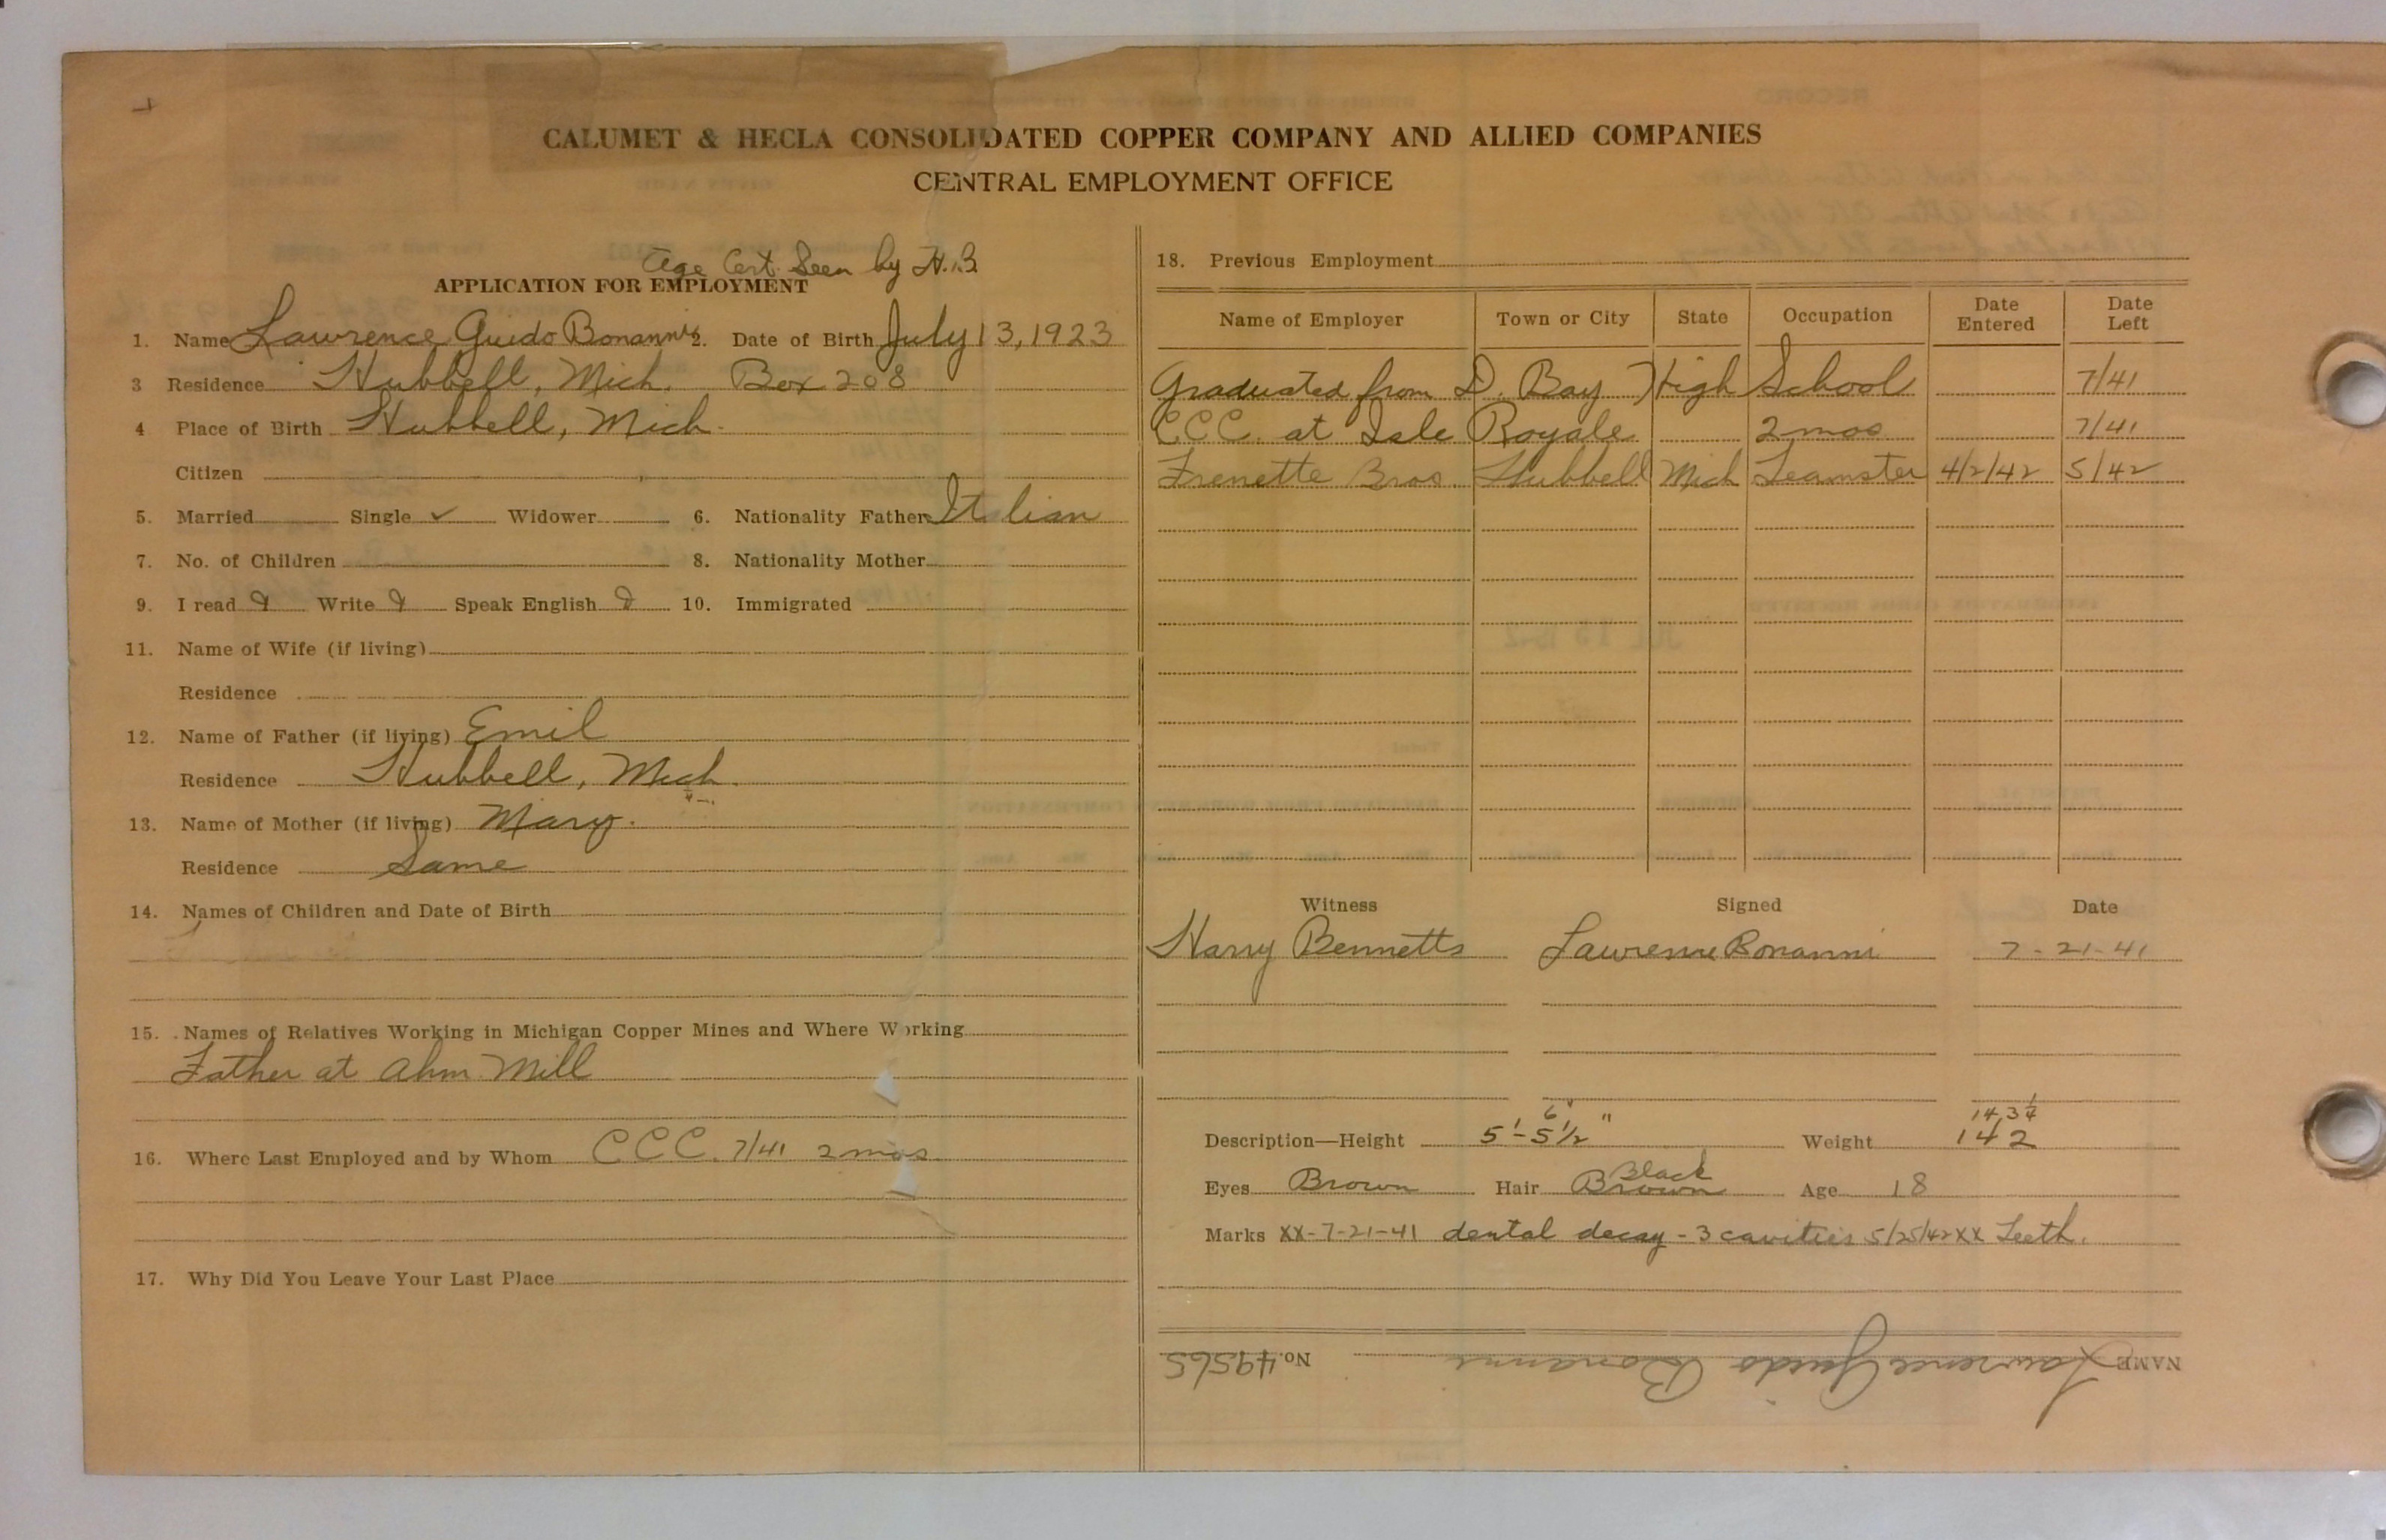 CALUMET & HECLA CONSOLIDATED COPPER COMPANY AND ALLIED COMPANIES
CENTRAL EMPLOYMENT OFFICE
Age Cert. Seen by H.B.
APPLICATION FOR EMPLOYMENT
1. Name Lawrence Guido Bonanni 2. Date of Birth July 13, 1923
3 Residence Hubbell, Mich. Box 208
4 Place of Birth Hubbell, Mich.
Citizen
5. Married Single ✓ Widower 6. Nationality Father Italian
7. No. of Children 8. Nationality Mother
9. I read Write Speak English 10. Immigrated
11. Name of Wife (if living)
Residence
12. Name of Father (if living) Emil
Residence Hubbell, Mich.
13. Name of Mother (if living) Mary.
Residence Same
14. Names of Children and Date of Birth
15. Names of Relatives Working in Michigan Copper Mines and Where Working
Father at Ahm Mill
16. Where Last Employed and by Whom CCC. 7/41 2 mos
17. Why Did You Leave Your Last Place
18. Previous Employment
Name of Employer Town or City State Occupation Date Entered Date Left
Graduated from D. Bay High School 7/41
CCC. at Isle Royale 2 mos 7/41
Frenette Bros. Hubbell Mich Teamster 4/2/42 5/42
Witness Signed Date
Harry Bennetts Lawrence Bonanni 7-21-41
6" 143 1/4
Description—Height 5'-5 1/2" Weight 142
Black
Eyes Brown Hair Brown Age 18
Marks XX-7-21-41 dental decay - 3 cavities 5/25/42 XX Teeth.
NAME Lawrence Guido Bonanni No. 49565